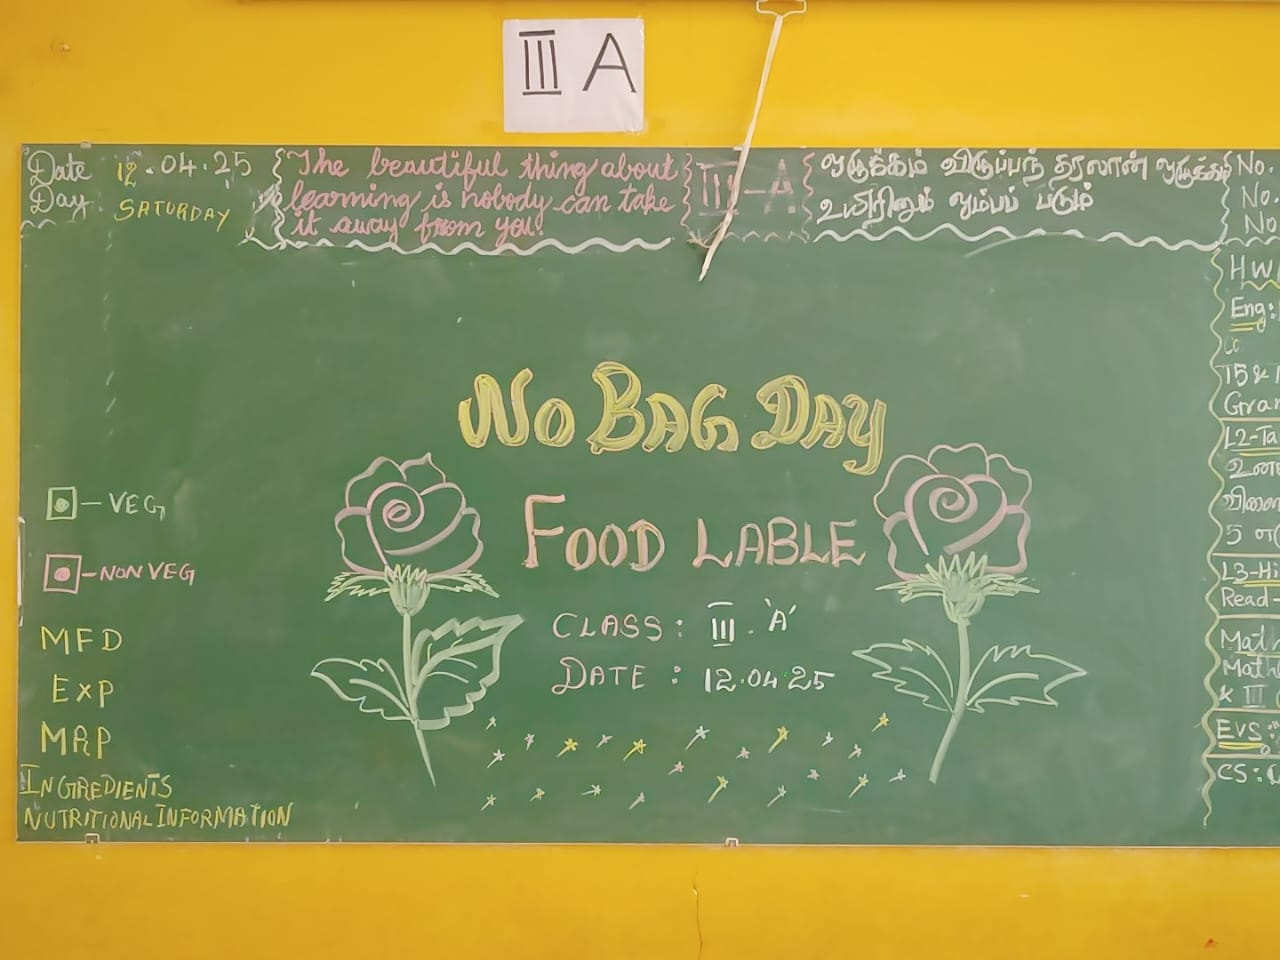 III A
Date 12.04.25
Day: SATURDAY
The beautiful thing about
learning is nobody can take
it away from you!
III-A
ஒழுக்கம் விழுப்பந் தரலான் ஒழுக்கம்
உயிரினும் ஓம்பப் படும்
No.
No.
No
HW
Eng:
15 &
Gran
L2-Ta
5
L3-Hi
Read-
Mat
Math
& III
EVS:
CS:
NO BAG DAY
FOOD LABLE
CLASS: III. 'A'
DATE : 12.04.25
-VEG
-NON VEG
MFD
EXP
MRP
INGREDIENTS
NUTRITIONAL INFORMATION